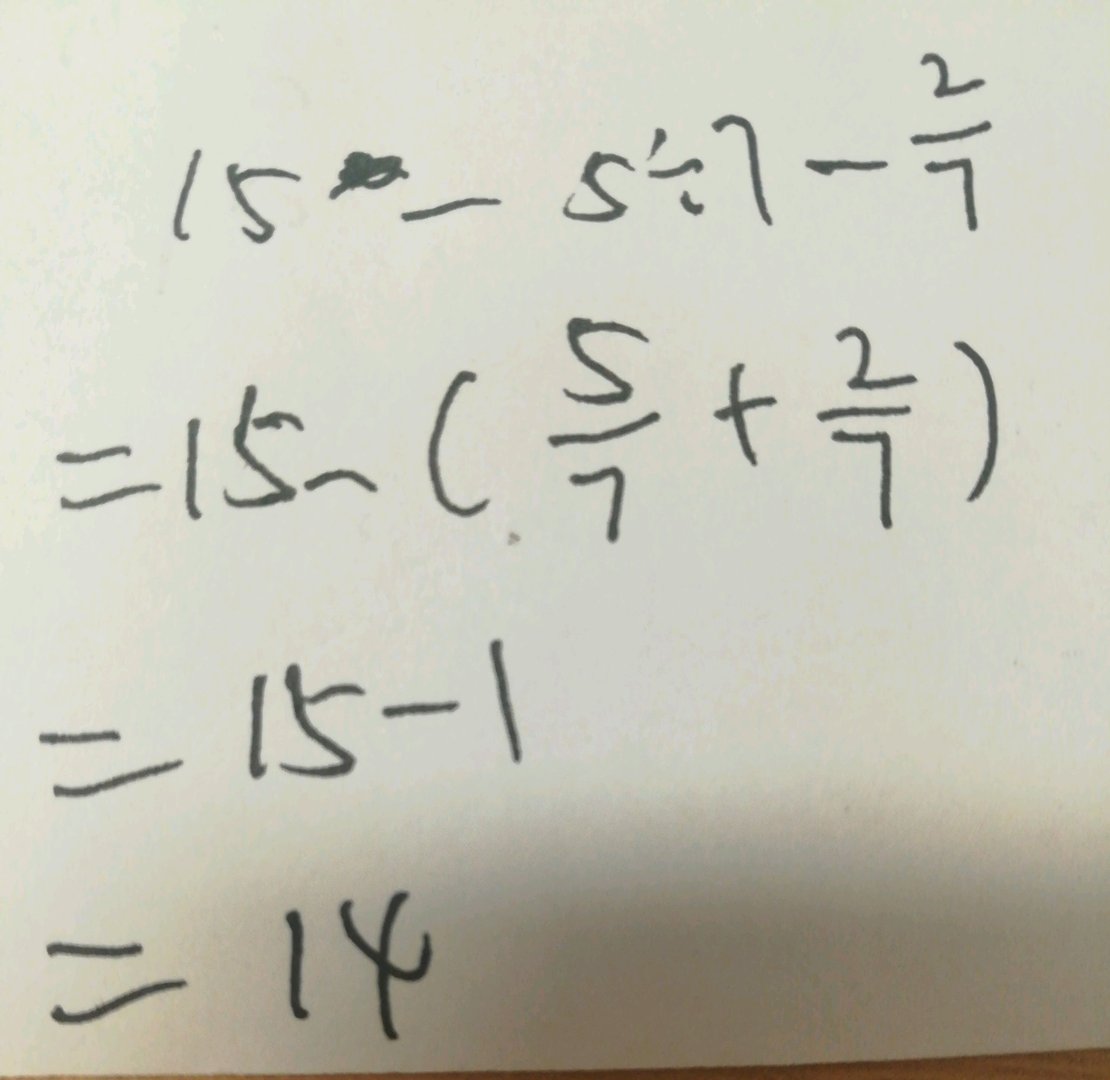 15 - 5÷7 - 2/7
=15-(5/7+2/7)
=15-1
=14